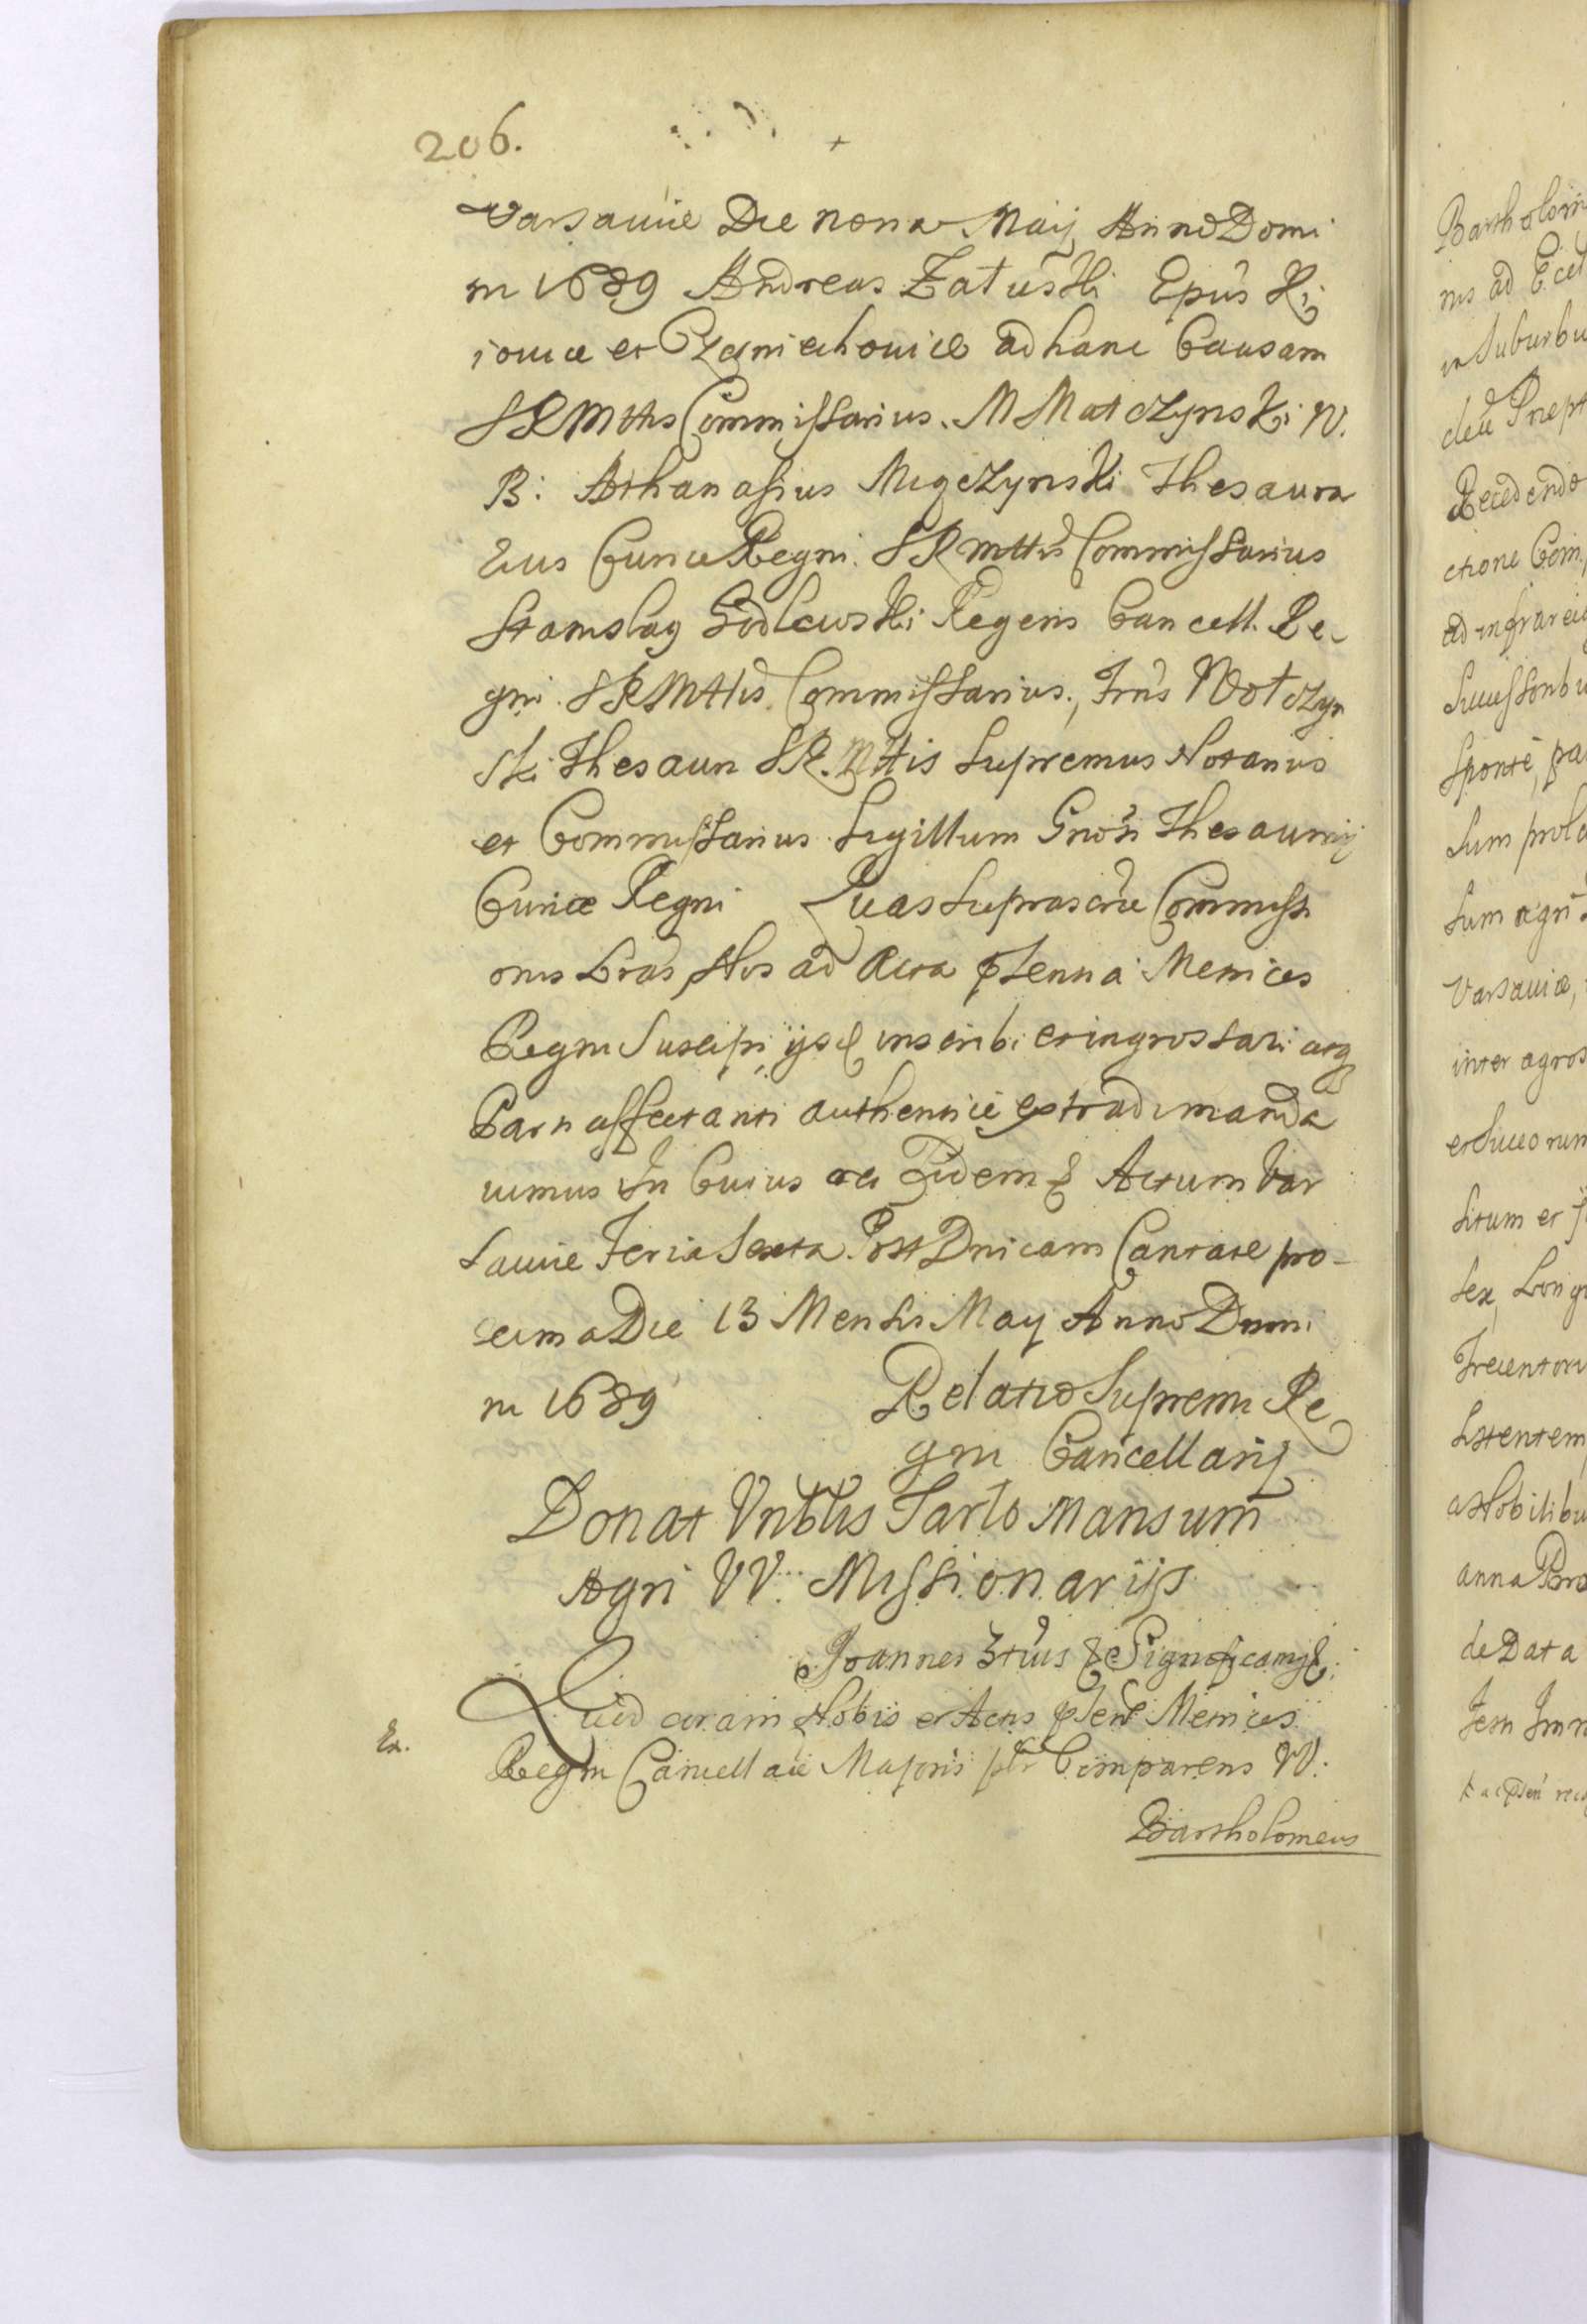 206.
Varsauiæ Die nona Maij Anno Domi
ni 1689 Andreas Załuski Epûs Ki
iouiæ et Czerniechouiæ ad hanc Causam
SRMttis Commissarius. M Matczynski W.
R: Athanasius Miączynski Thesaura
rius Curiæ Regni. SRMttis Commissarius
Stanislaꝯ Godlewski Regens Cancell. Re-
gni SRMttis. Commissarius.
ski Thesauri SR.Mttis Supremus Notarius
et Commissarius. Sigillum Gnosi Thesaurarij
Curiæ Regni Quas suprascriptæ Commissi
onis Lras Nos ad Acta pñtenna Metrices
Regni Suscipi ijsq inscribi et ingrossari atq
Parti affectanti authentice extradi manda
uimus In Cuius rei Fidem & Actum Var
sauiæ Feria Sexta Post Dnicam Cantate pro-
xima Die 13 Mensis Maij Anno Domi
ni 1689 Relatio Supremi Re
gni Cancellarij
Donat Vrbtis Tarło Mansum
Agri VV. Missionarijs
Joannes 3tius & Significamq &.
Quod coram Nobis et Actis pñtenb Metrices
Regni Cancellariæ Majoris pltr Comparens W.
Ex.
Bartholomeus
Bartholom
nis ad Eccl
in Suburbi
Recedendo
ctione Com
ad infrarei
Successorib
Sponte, pa
sum prola
sum agri
Varsauiæ,
inter agros
et Succorum
Situm et
sex, Long
Trecentor
sistentem
a Nobilibu
anna Pra
de Data